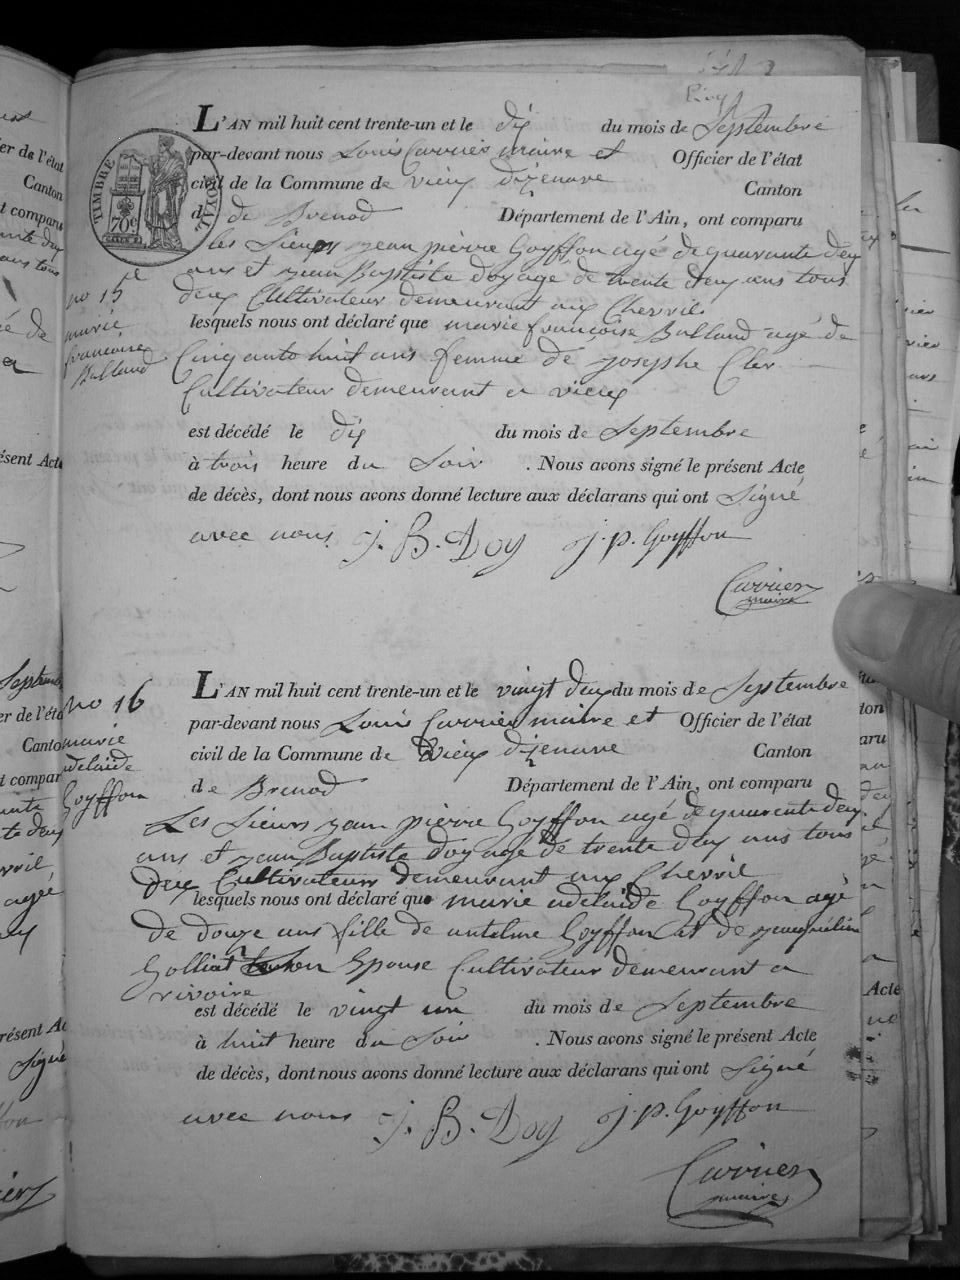 L'AN mil huit cent trente-un et le dix du mois de Septembre
par-devant nous Louis Carrier maire et Officier de l'état
civil de la Commune de vieux dizenave Canton
d de Brenod Département de l'Ain, ont comparu
les Sieurs jean pierre Goyffon agé de quarante deux
ans et jean Baptiste doy age de trente deux ans tous
deux Cultivateur demeurant aux Chevril
no 15
marie
francoise
Balland
lesquels nous ont déclaré que marie francoise Balland agé de
Cinquante huit ans femme de Josephe Cler
Cultivateur demeurant a vieux
est décédé le dix du mois de Septembre
à trois heure du Soir . Nous avons signé le présent Acte
de décès, dont nous avons donné lecture aux déclarans qui ont Signé
avec nous J. B. Doy j. p. Goyffon
Carrier
maire
TIMBRE ROYAL
70c
no 16
marie
adelaide
Goyffon
L'AN mil huit cent trente-un et le vingt deux du mois de Septembre
par-devant nous Louis Carrier maire et Officier de l'état
civil de la Commune de vieux dizenave Canton
de Brenod Département de l'Ain, ont comparu
Les Sieurs jean pierre Goyffon agé de quarente deux
ans et jean Baptiste doy age de trente deux ans tous
deux Cultivateurs demeurant aux Chevril
lesquels nous ont déclaré que marie adelaide Goyffon agé
de douze ans fille de antelme Goyffon et de
Golliat son Epouse Cultivateur demeurant a
rivoire
est décédé le vingt un du mois de Septembre
à huit heure du Soir . Nous avons signé le présent Acte
de décès, dont nous avons donné lecture aux déclarans qui ont Signé
avec nous J. B. Doy j. p. Goyffon
Carrier
maire